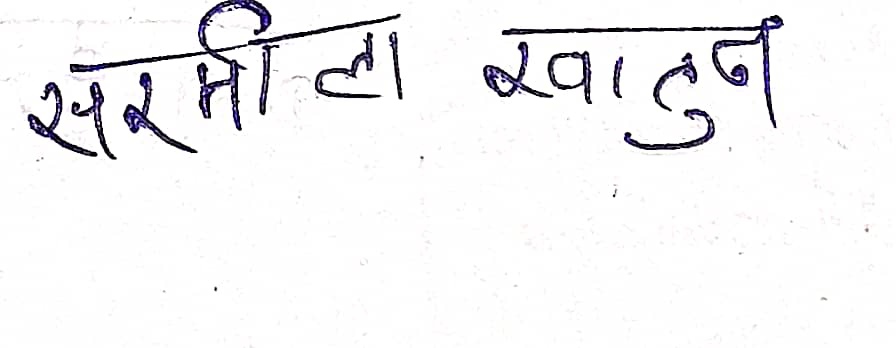 सरमीला खातुन